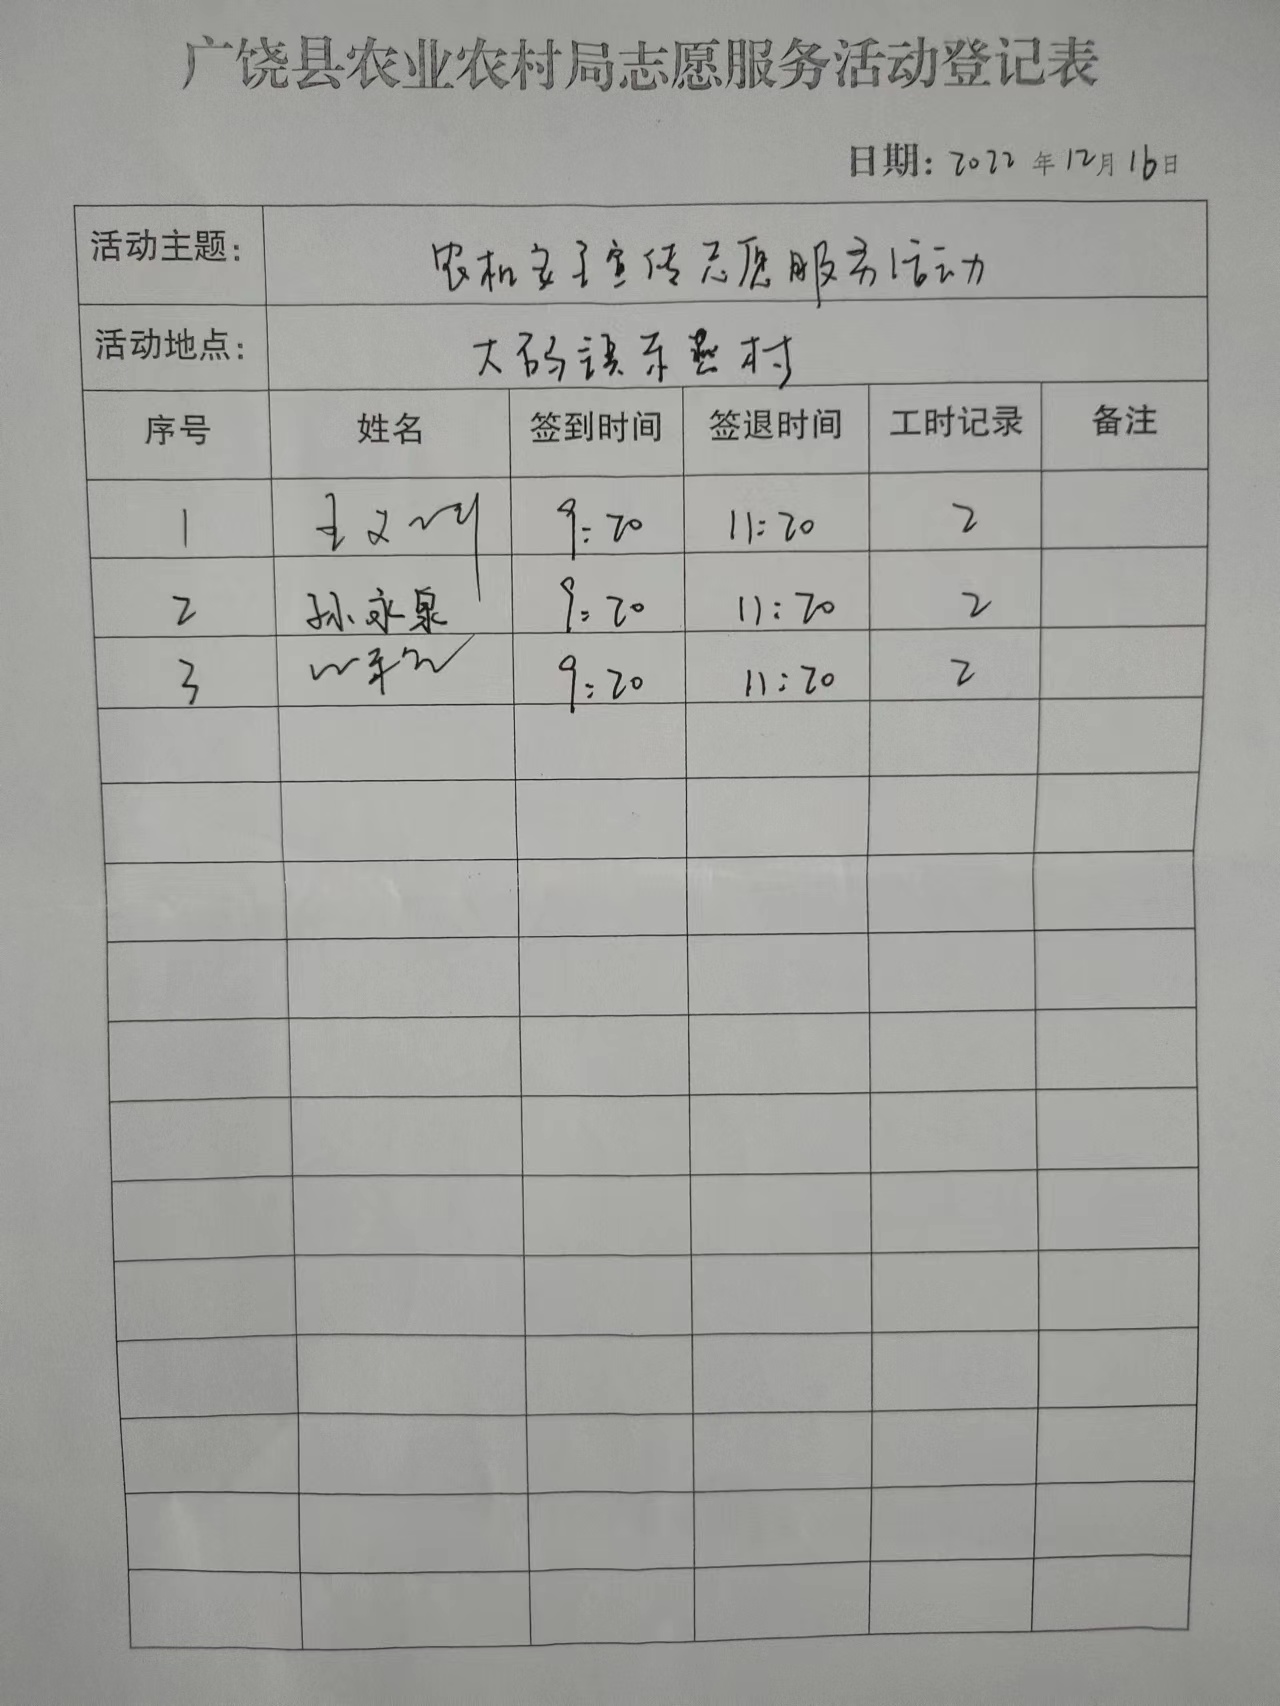 广饶县农业农村局志愿服务活动登记表
日期: 2022 年 12月 16日
活动主题: 农机安全宣传志愿服务活动
活动地点: 大码头镇东燕村
序号 姓名 签到时间 签退时间 工时记录 备注
1 9:20 11:20 2
2 孙永泉 9:20 11:20 2
3 9:20 11:20 2